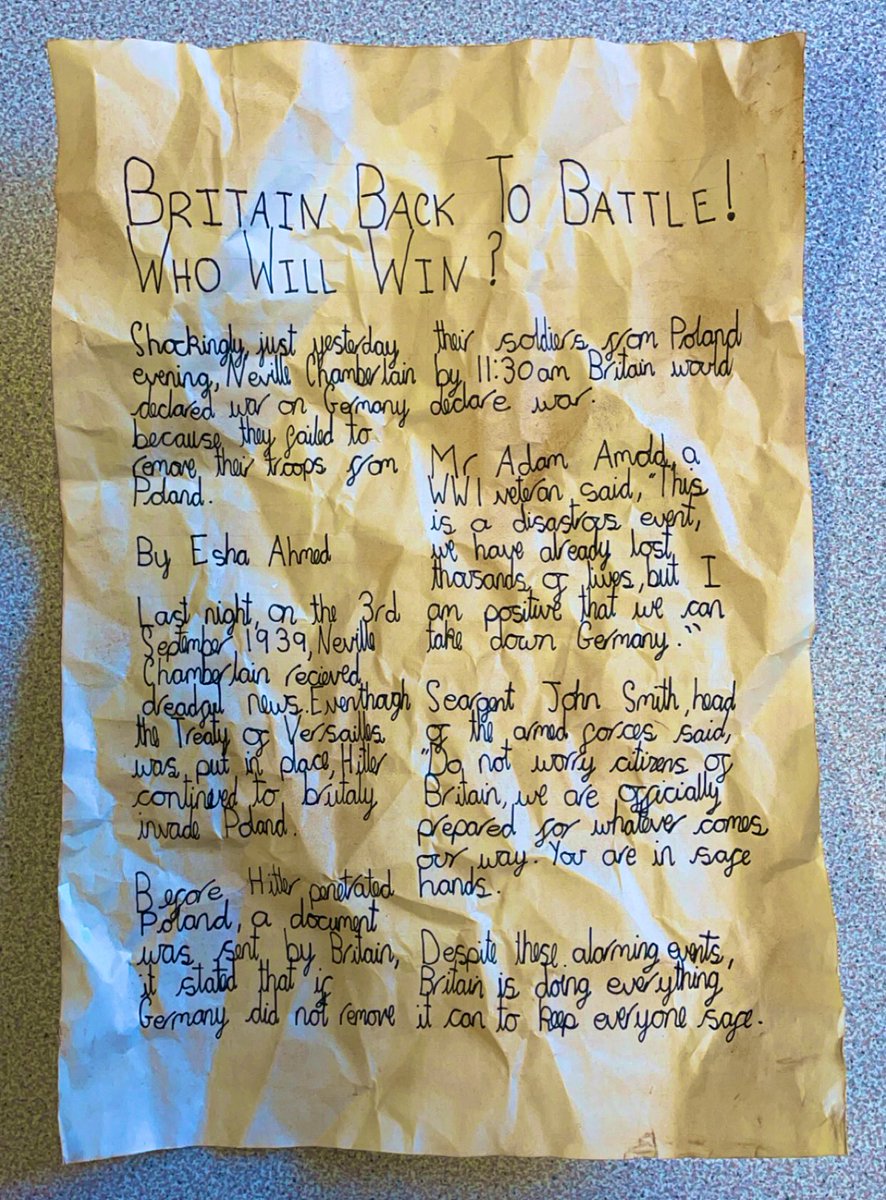 BRITAIN BACK TO BATTLE!
WHO WILL WIN?
Shockingly, just yesterday
evening, Neville Chamberlain
declared war on Germany
because they failed to
remove their troops from
Poland.
By Esha Ahmed
Last night, on the 3rd
September 1939, Neville
Chamberlain recieved
dreadful news. Eventhough
the Treaty of Versailles
was put in place, Hitler
contineed to brutaly
invade Poland.
Before Hitler penetrated
Poland, a document
was sent by Britain,
it stated that if
Germany did not remove
their soldiers from Poland
by 11:30am Britain would
declare war.
Mr Adam Arnold, a
WW1 veteran said, "This
is a disastrous event,
we have already lost
thousands of lives, but I
am positive that we can
take down Germany."
Seargent John Smith, head
of the armed forces said,
"Do not worry citizens of
Britain, we are officially
prepared for whatever comes
our way. You are in safe
hands.
Despite these alarming events,
Britain is doing everything
it can to keep everyone safe.